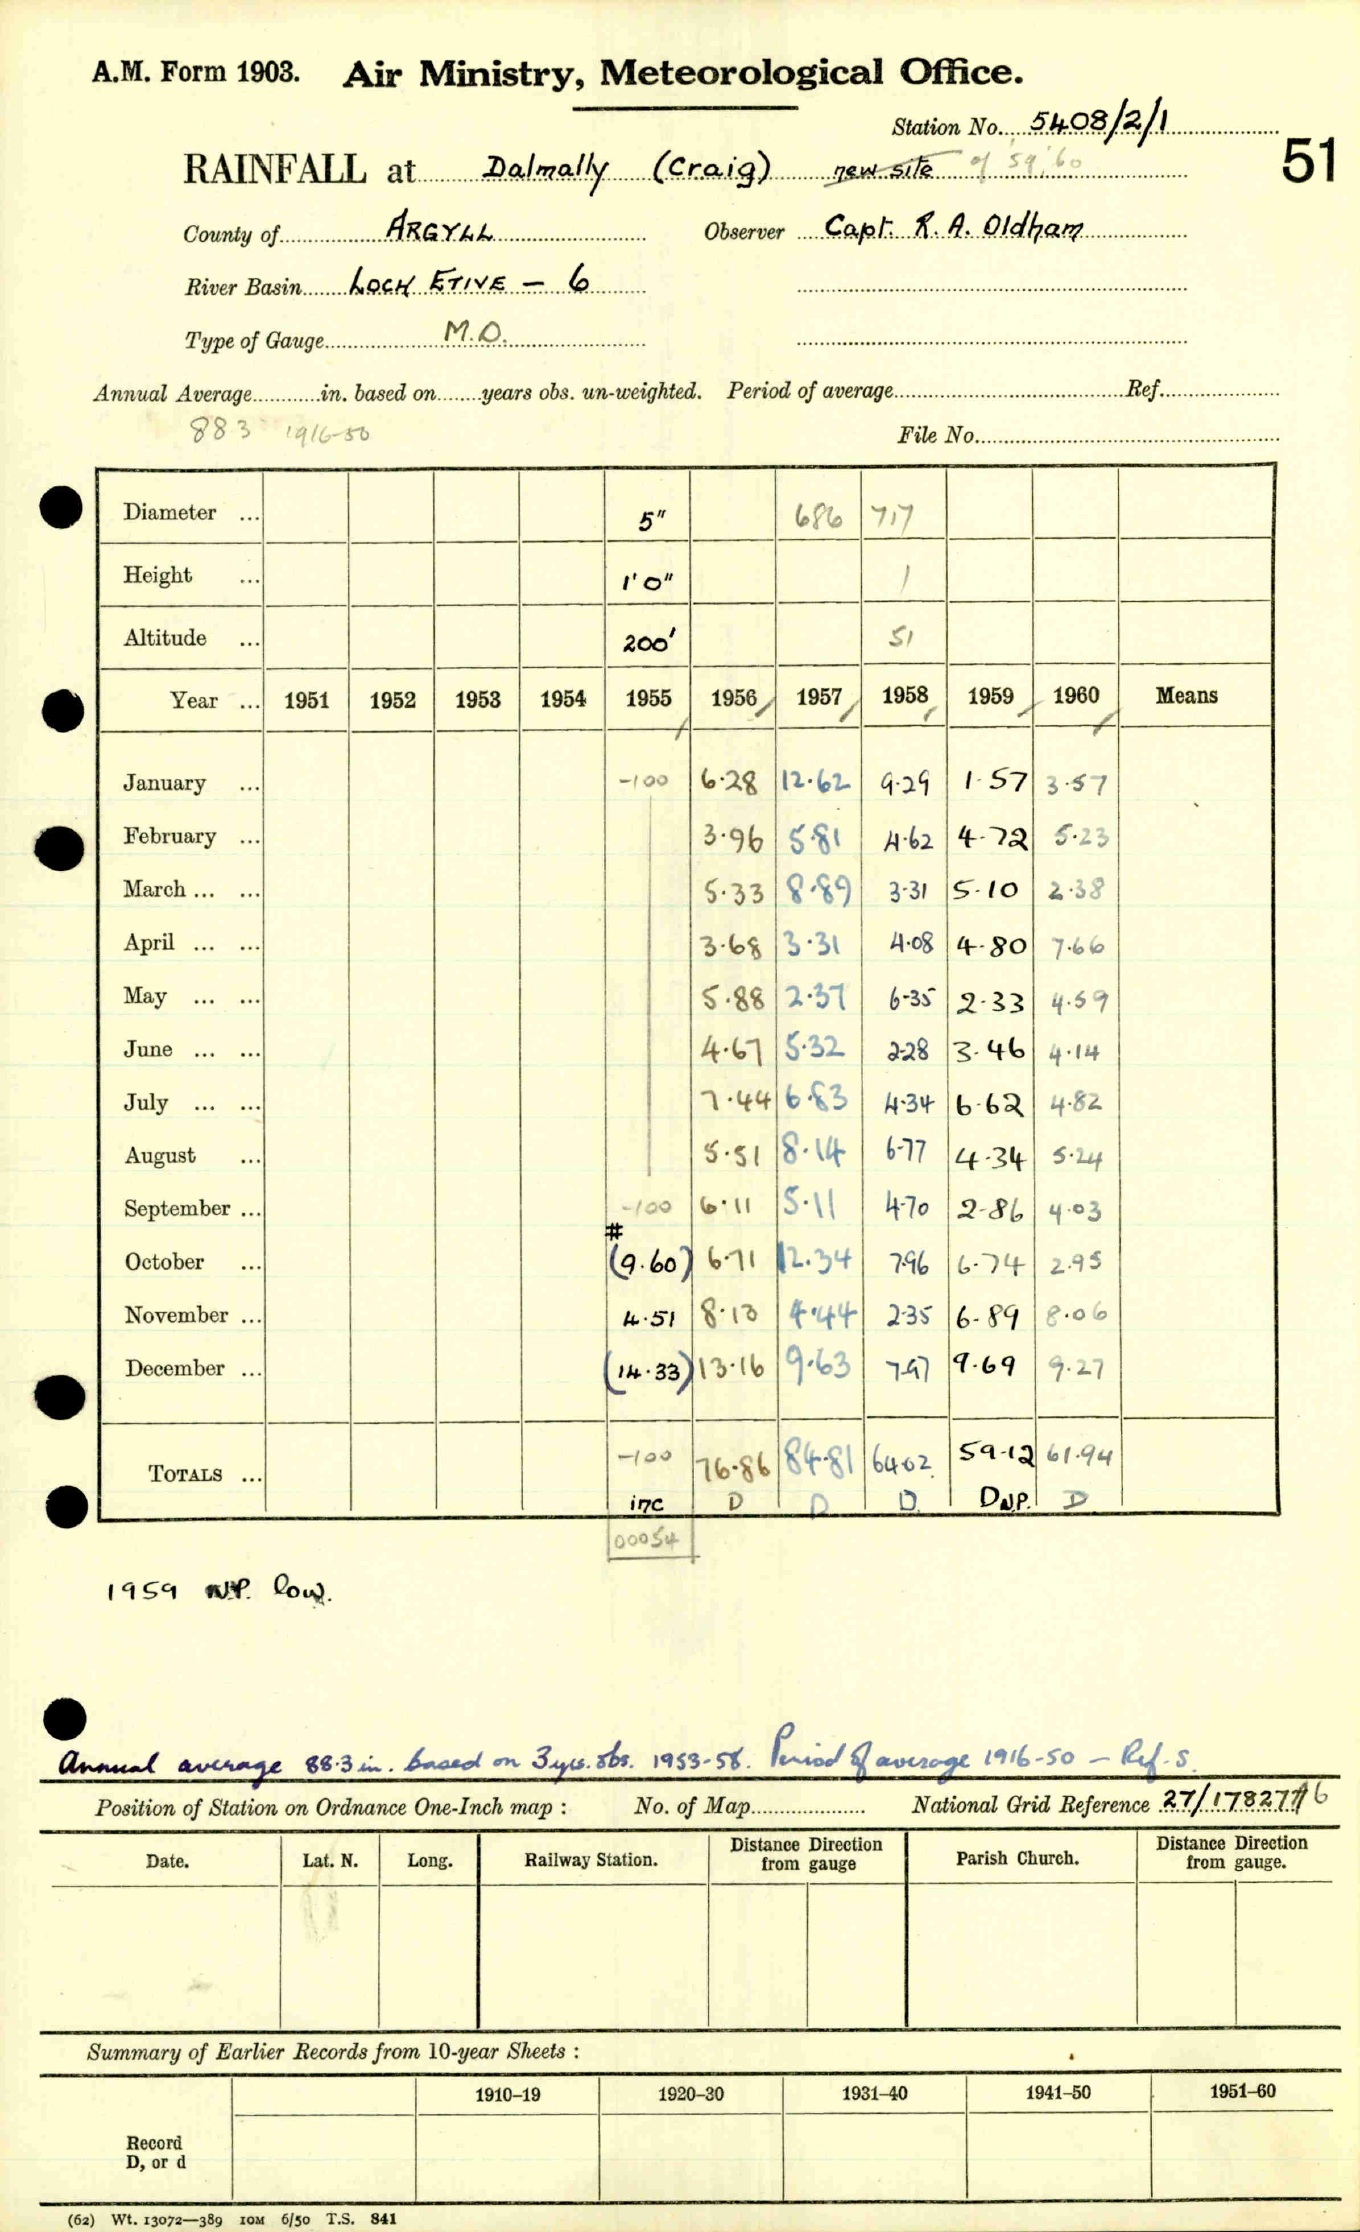 A.M. Form 1903. Air Ministry, Meteorological Office.
Station No. 5408/2/1
51
RAINFALL at Dalmally (Craig) new site of '59,'60
County of ARGYLL Observer Capt. R. A. Oldham
River Basin LOCH ETIVE – 6
Type of Gauge M.O.
Annual Average in. based on years obs. un-weighted. Period of average Ref.
883 1916-50
File No.
Diameter ... 5" 686 717
Height ... 1' 0" 1
Altitude ... 200' 51
Year ... 1951 1952 1953 1954 1955 1956 1957 1958 1959 1960 Means
January ... -100 6.28 12.62 9.29 1.57 3.57
February ... 3.96 5.81 4.62 4.72 5.23
March ... ... 5.33 8.89 3.31 5.10 2.38
April ... ... 3.68 3.31 4.08 4.80 7.66
May ... ... 5.88 2.37 6.35 2.33 4.59
June ... ... 4.67 5.32 2.28 3.46 4.14
July ... ... 7.44 6.83 4.34 6.62 4.82
August ... 5.51 8.14 6.77 4.34 5.24
September ... -100 6.11 5.11 4.70 2.86 4.03
#
October ... (9.60) 6.71 12.34 7.96 6.74 2.95
November ... 4.51 8.13 4.44 2.35 6.89 8.06
December ... (14.33) 13.16 9.63 7.97 9.69 9.27
TOTALS ... -100 76.86 84.81 64.02 59.12 61.94
inc D D D. D N.P. D
00054
1959 N.P. low.
Annual average 88.3 in. based on 3 yrs. obs. 1953-58. Period of average 1916-50 – Ref. S.
Position of Station on Ordnance One-Inch map : No. of Map National Grid Reference
Date. Lat. N. Long. Railway Station. Distance Direction from gauge Parish Church. Distance Direction from gauge.
Summary of Earlier Records from 10-year Sheets :
1910–19 1920–30 1931–40 1941–50 1951–60
Record
D, or d
(62) Wt. 13072—389 10M 6/50 T.S. 841